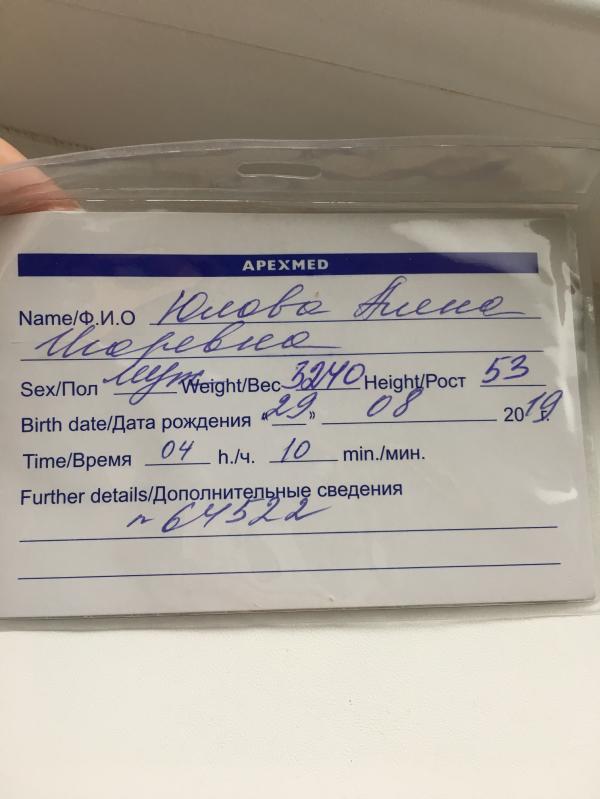 APEXMED
Name/Ф.И.О Юлова Алена
Игоревна
Sex/Пол муж Weight/Вес 3240 Height/Рост 53
Birth date/Дата рождения "29" 08 2019.
Time/Время 04 h./ч. 10 min./мин.
Further details/Дополнительные сведения
n 64522